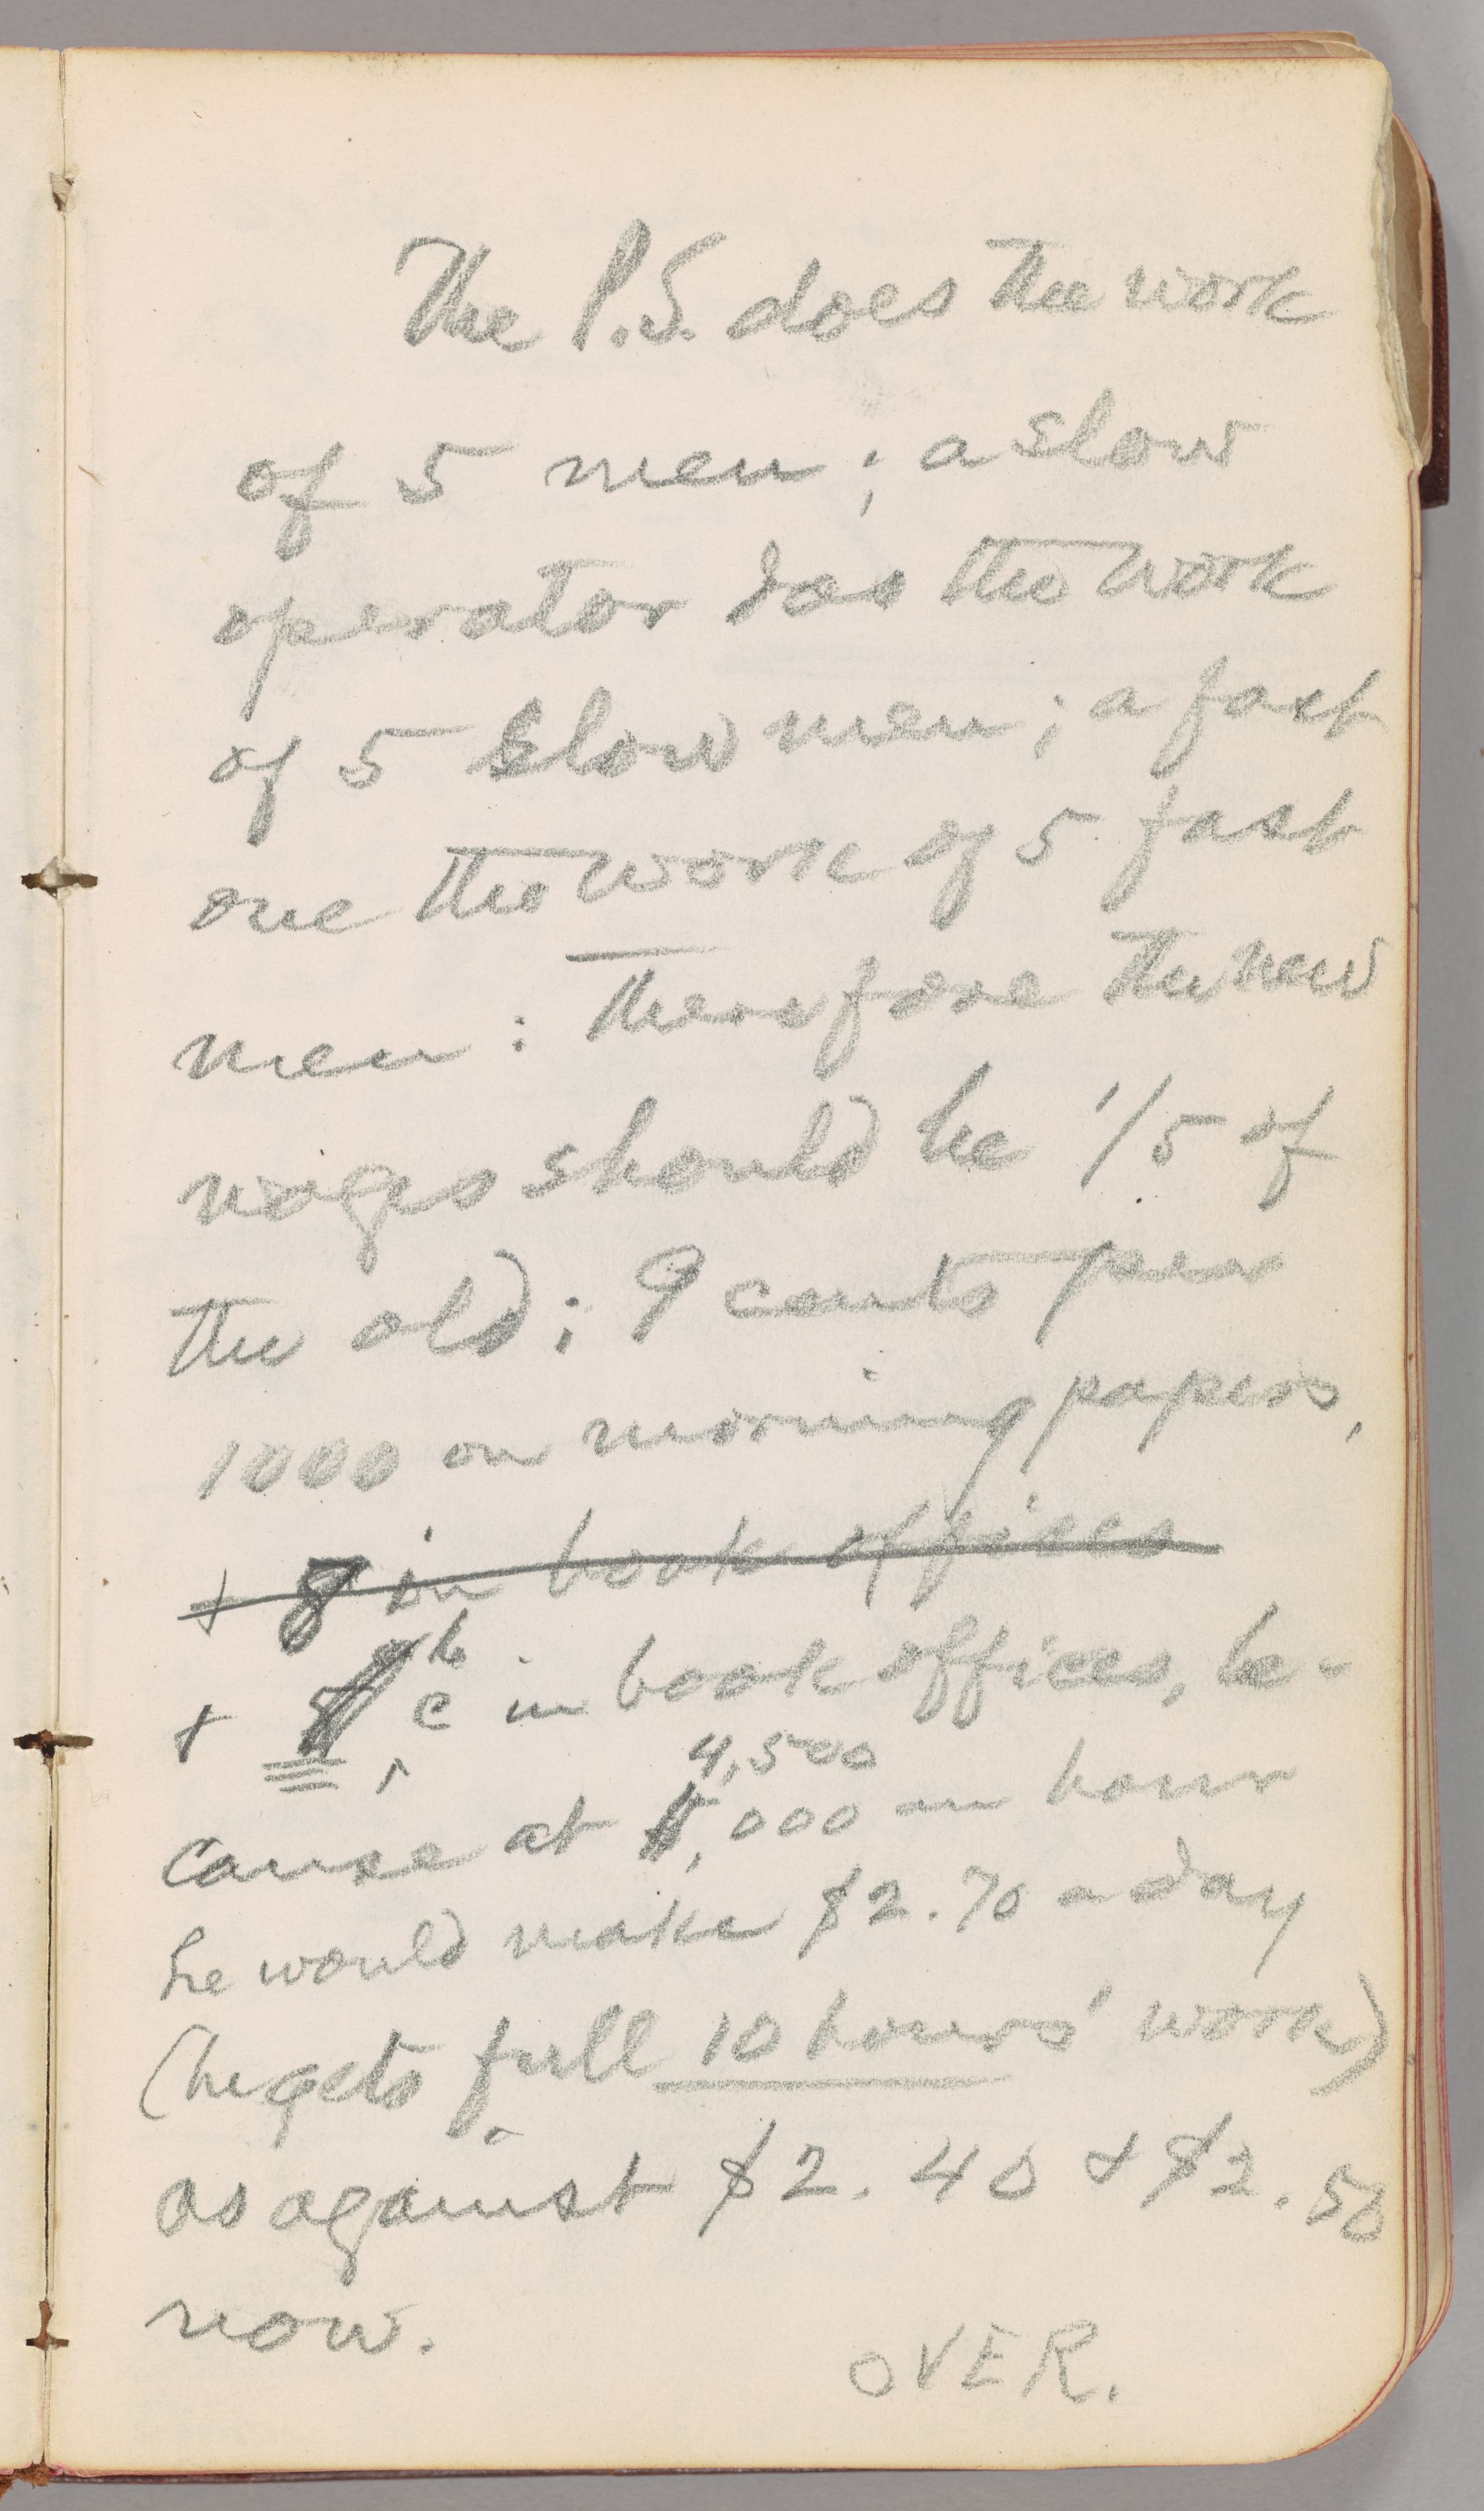 The P.S. does the work
of 5 men; a slow
operator does the work
of 5 slow men; a fast
one the work of 5 fast
men: Therefore the new
wages should be 1/5 of
the old; 9 cents per
1000 on morning papers,
+ 8 in book offices
+ 6 c in book offices, be-
4,500
cause at 5,000 an hour
he would make $2.70 a day
(he gets full 10 hours' work)
as against $2.40 + $2.50
now.
OVER.